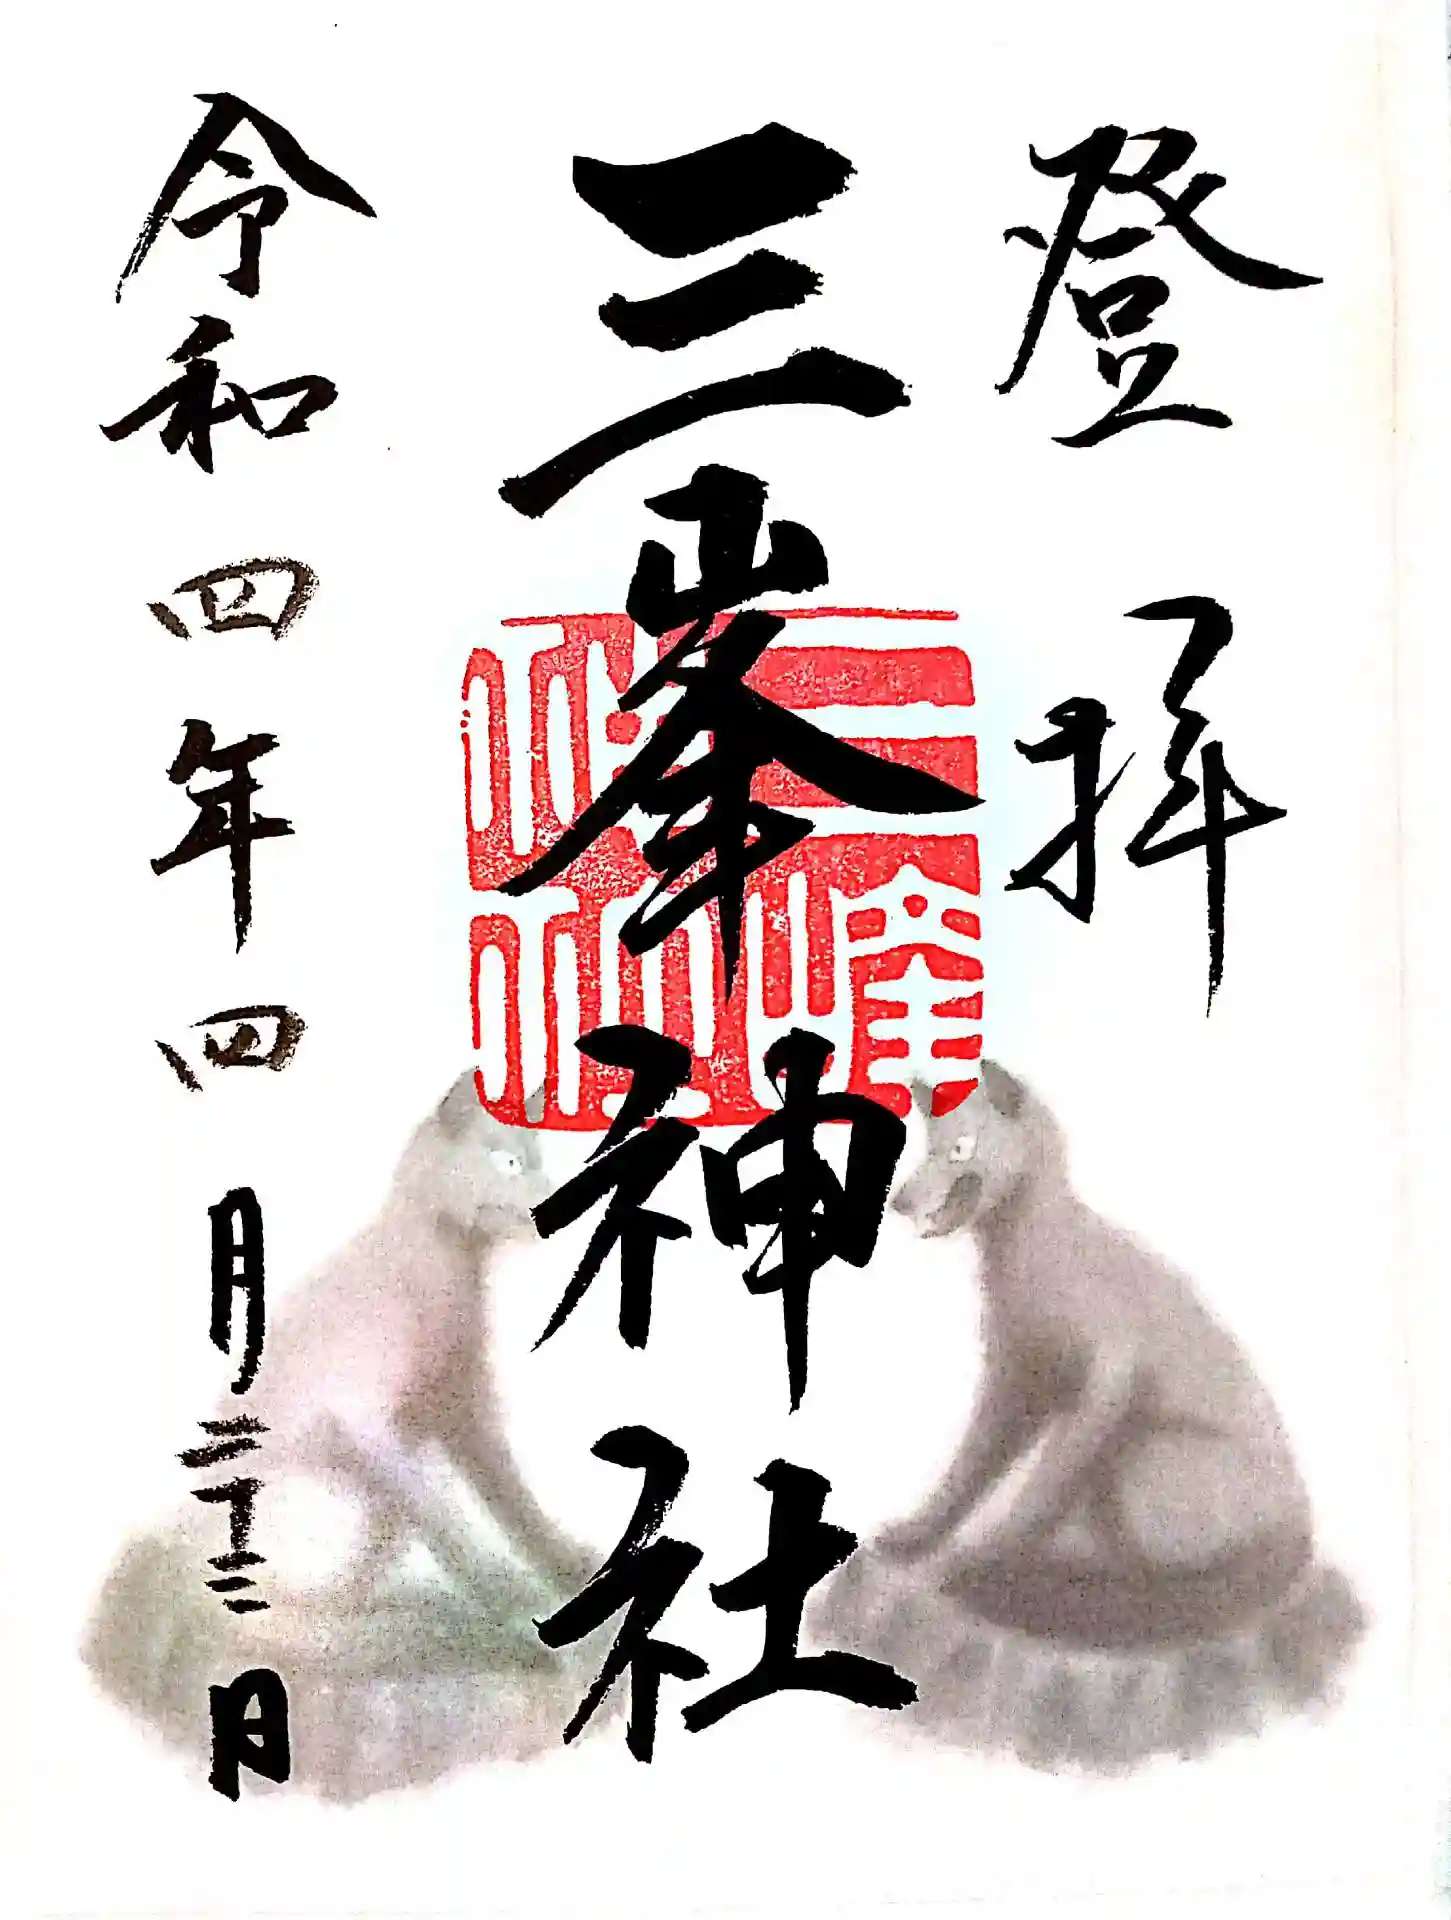 登拝
三峯神社
三峰
神社
令和四年四月二十二日